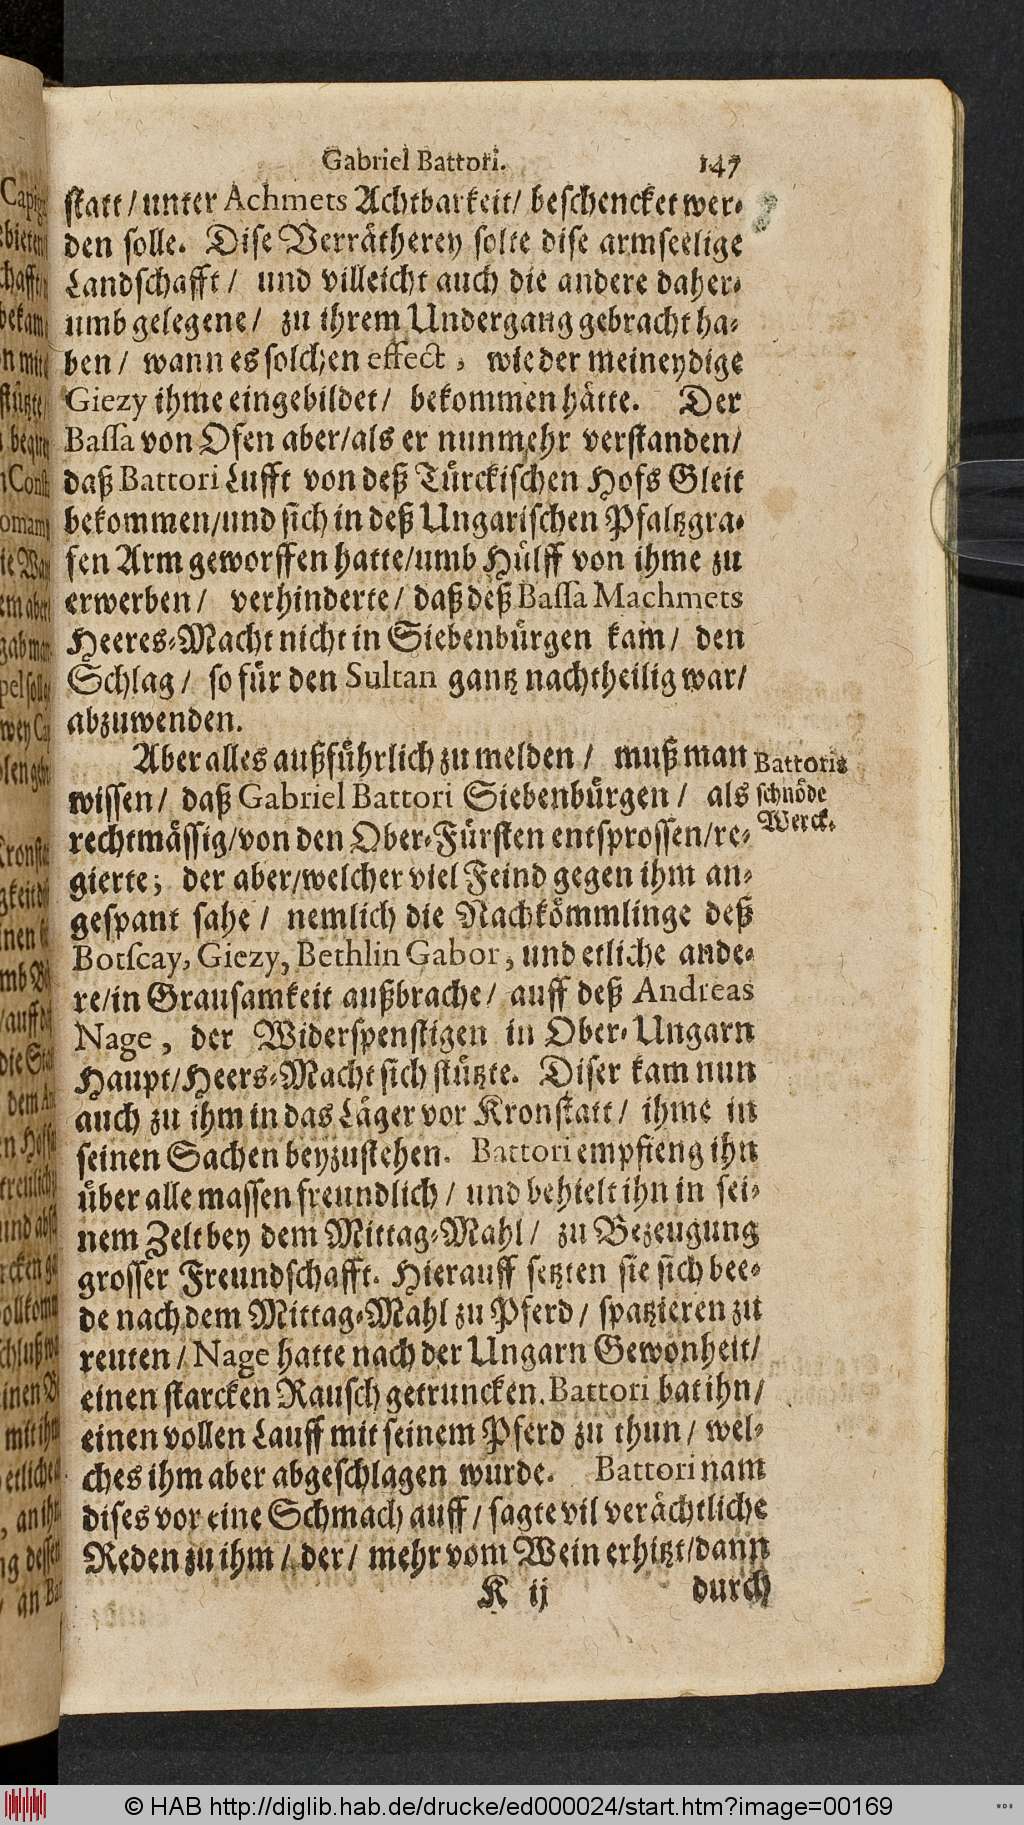 Gabriel Battori. 147
statt / unter Achmets Achtbarkeit / beschencket wer-
den solle. Dise Verrätherey solte dise armseelige
Landschafft / und villeicht auch die andere daher-
umb gelegene / zu ihrem Undergang gebracht ha-
ben / wann es solchen effect, wie der meineydige
Giezy ihme eingebildet / bekommen hätte. Der
Bassa von Ofen aber / als er nunmehr verstanden /
daß Battori Lufft von deß Türckischen Hofs Gleit
bekommen / und sich in deß Ungarischen Pfaltzgra-
fen Arm geworffen hatte / umb Hülff von ihme zu
erwerben / verhinderte / daß deß Bassa Machmets
Heeres-Macht nicht in Siebenbürgen kam / den
Schlag / so für den Sultan gantz nachtheilig war /
abzuwenden.
Aber alles außführlich zu melden / muß man
wissen / daß Gabriel Battori Siebenbürgen / als
rechtmässig / von den Ober-Fürsten entsprossen / re-
gierte; der aber / welcher viel Feind gegen ihm an-
gespant sahe / nemlich die Nachkömmlinge deß
Botscay, Giezy, Bethlin Gabor, und etliche ande-
re / in Grausamkeit außbrache / auff deß Andreas
Nage, der Widerspenstigen in Ober-Ungarn
Haupt / Heers-Macht sich stützte. Diser kam nun
auch zu ihm in das Läger vor Kronstatt / ihme in
seinen Sachen beyzustehen. Battori empfieng ihn
über alle massen freundlich / und behielt ihn in sei-
nem Zelt bey dem Mittag-Mahl / zu Bezeugung
grosser Freundschafft. Hierauff setzten sie sich bee-
de nach dem Mittag-Mahl zu Pferd / spatzieren zu
reuten / Nage hatte nach der Ungarn Gewonheit /
einen starcken Rausch getruncken. Battori bat ihn /
einen vollen Lauff mit seinem Pferd zu thun / wel-
ches ihm aber abgeschlagen wurde. Battori nam
dises vor eine Schmach auff / sagte vil verächtliche
Reden zu ihm / der / mehr vom Wein erhitzt / dann
K ij durch
Battoris
schnöde
Werck.
© HAB http://diglib.hab.de/drucke/ed000024/start.htm?image=00169